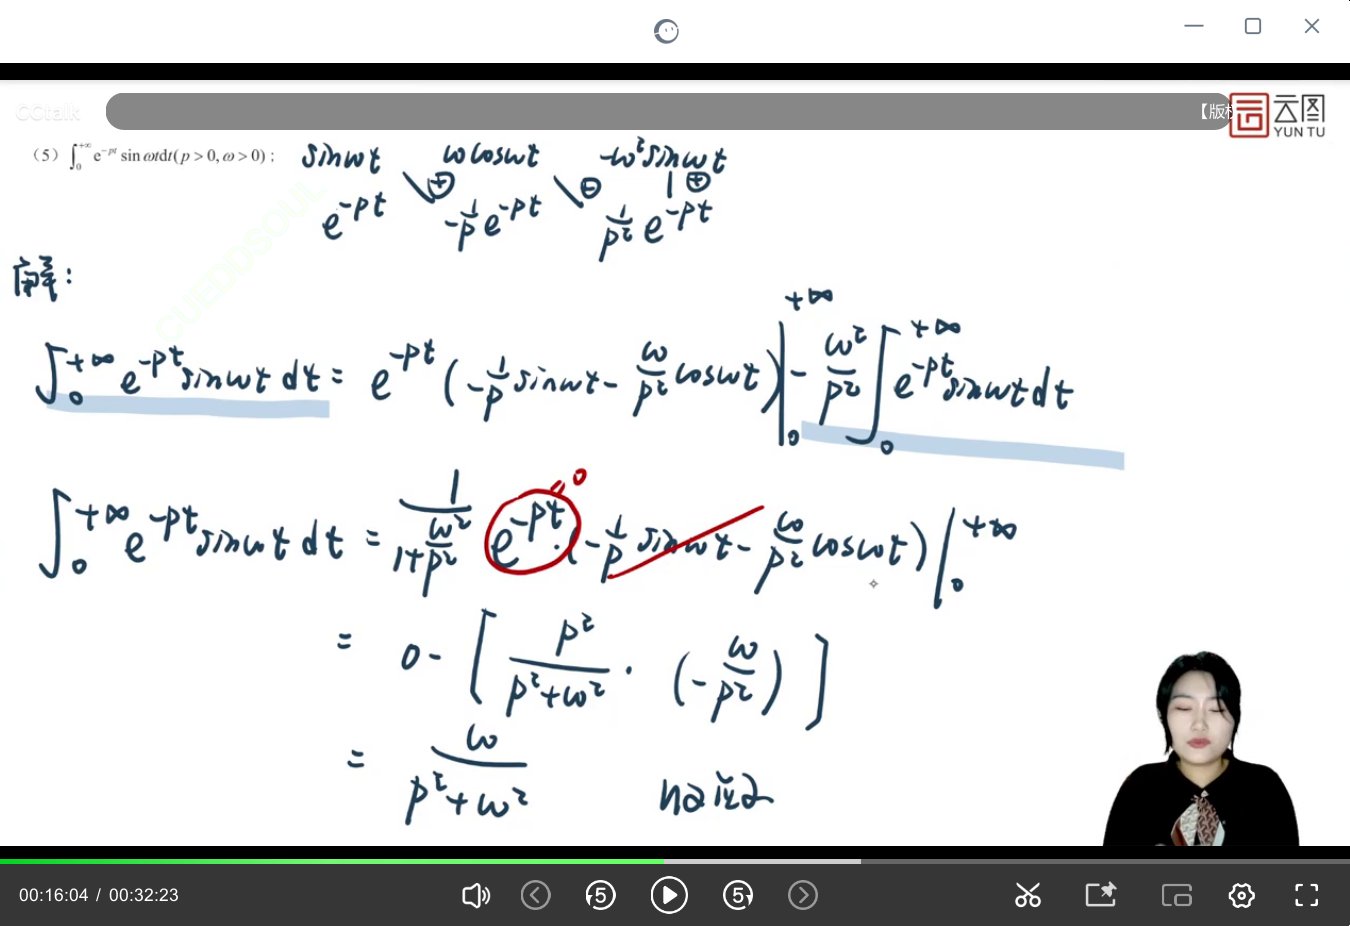 CCtalk
【版权
云图
YUN TU
（5）∫₀^{+∞} e^{-pt} sin ωtdt(p > 0, ω > 0) :
sinωt ωcosωt -ω²sinωt
⊕ ⊖ ⊕
e^{-pt} -1/p e^{-pt} 1/p² e^{-pt}
CUEDDSOUL
解:
∫₀^{+∞} e^{-pt} sinωt dt = e^{-pt} (-1/p sinωt - ω/p² cosωt)|₀^{+∞} - ω²/p² ∫₀^{+∞} e^{-pt} sinωt dt
= 0
∫₀^{+∞} e^{-pt} sinωt dt = 1/(1+ω²/p²) e^{-pt}·(-1/p sinωt - ω/p² cosωt)|₀^{+∞}
= 0 - [p²/(p²+ω²) · (-ω/p²)]
= ω/(p²+ω²)
00:16:04 / 00:32:23
5 5